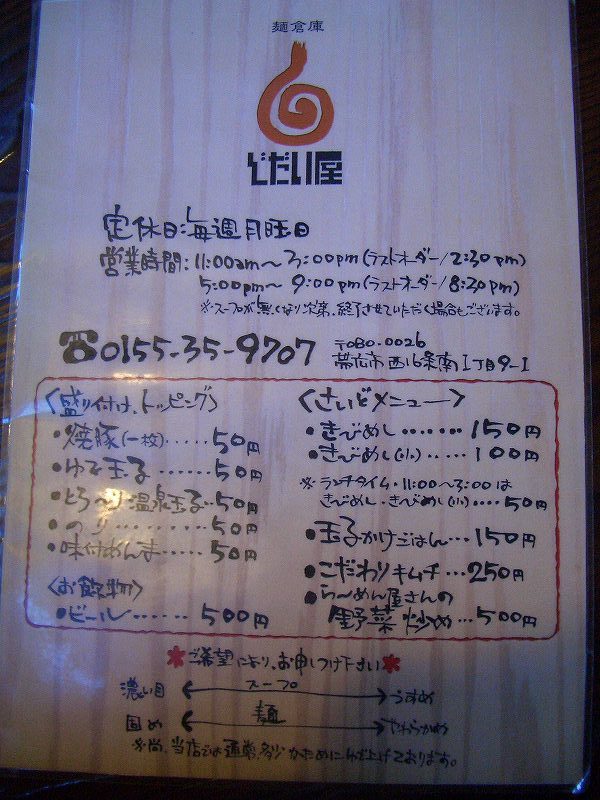 麺倉庫
じだい屋
定休日:毎週月曜日
営業時間:11:00am〜3:00pm(ラストオーダー/2:30pm)
5:00pm〜9:00pm(ラストオーダー/8:30pm)
※スープが無くなり次第、終了させていただく場合もございます。
☎0155-35-9707
〒080-0026
帯広市西16条南1丁目9-1
〈盛り付け、トッピング〉
・焼豚(一枚)‥‥‥50円
・ゆで玉子‥‥‥50円
・とろ〜り温泉玉子‥50円
・のり‥‥‥‥50円
・味付めんま‥‥‥50円
〈お飲物〉
・ビール‥‥‥500円
〈さいどメニュー〉
・きびめし‥‥‥150円
・きびめし(小)‥‥100円
※ランチタイム・11:00〜3:00は
きびめし・きびめし(小)‥‥50円
・玉子かけごはん‥‥150円
・こだわりキムチ‥250円
・らーめん屋さんの
野菜炒め‥500円
ご希望により、お申しつけ下さい
濃い目 スープ うすめ
固め 麺 やわらかめ
※尚、当店では通常、多少かためにゆで上げております。